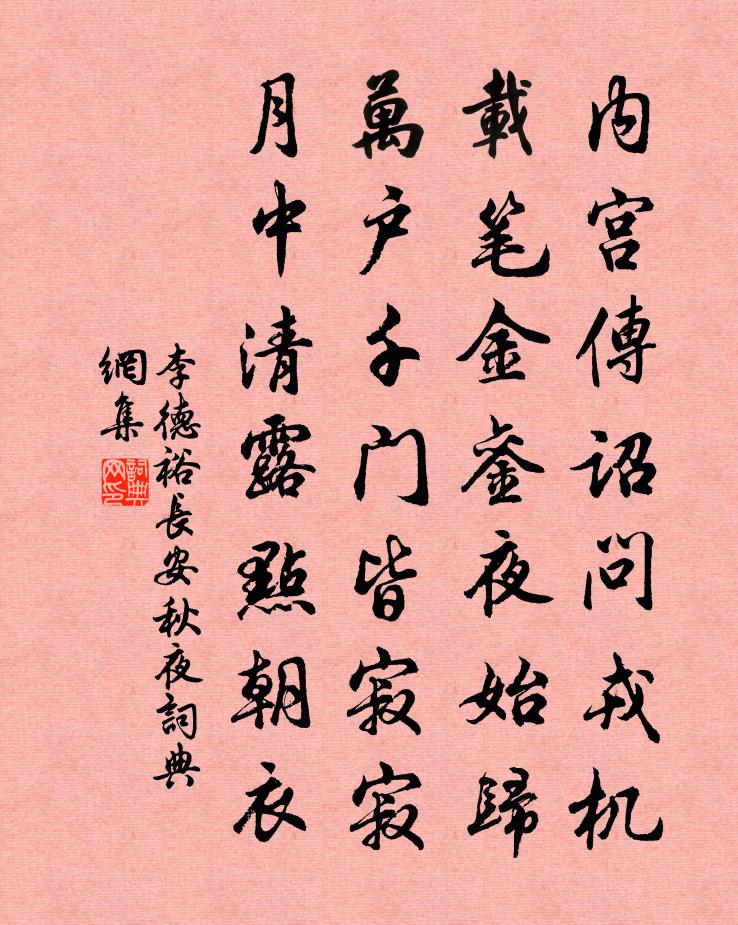 内宫傳诏问戎机
載笔金銮夜始歸
萬户千门皆寂寂
月中清露點朝衣
李德裕長安秋夜詞典
網集
詞典网印